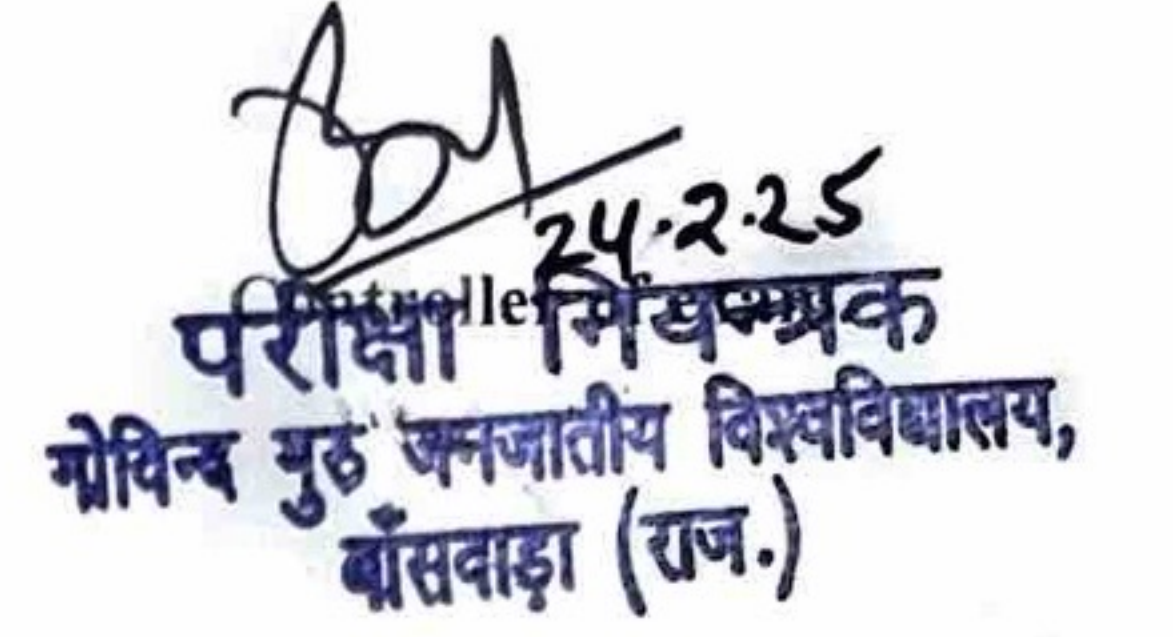 24.2.25
Controller of
परीक्षा नियन्त्रक
गोविन्द गुरु जनजातीय विश्वविद्यालय,
बाँसवाड़ा (राज.)